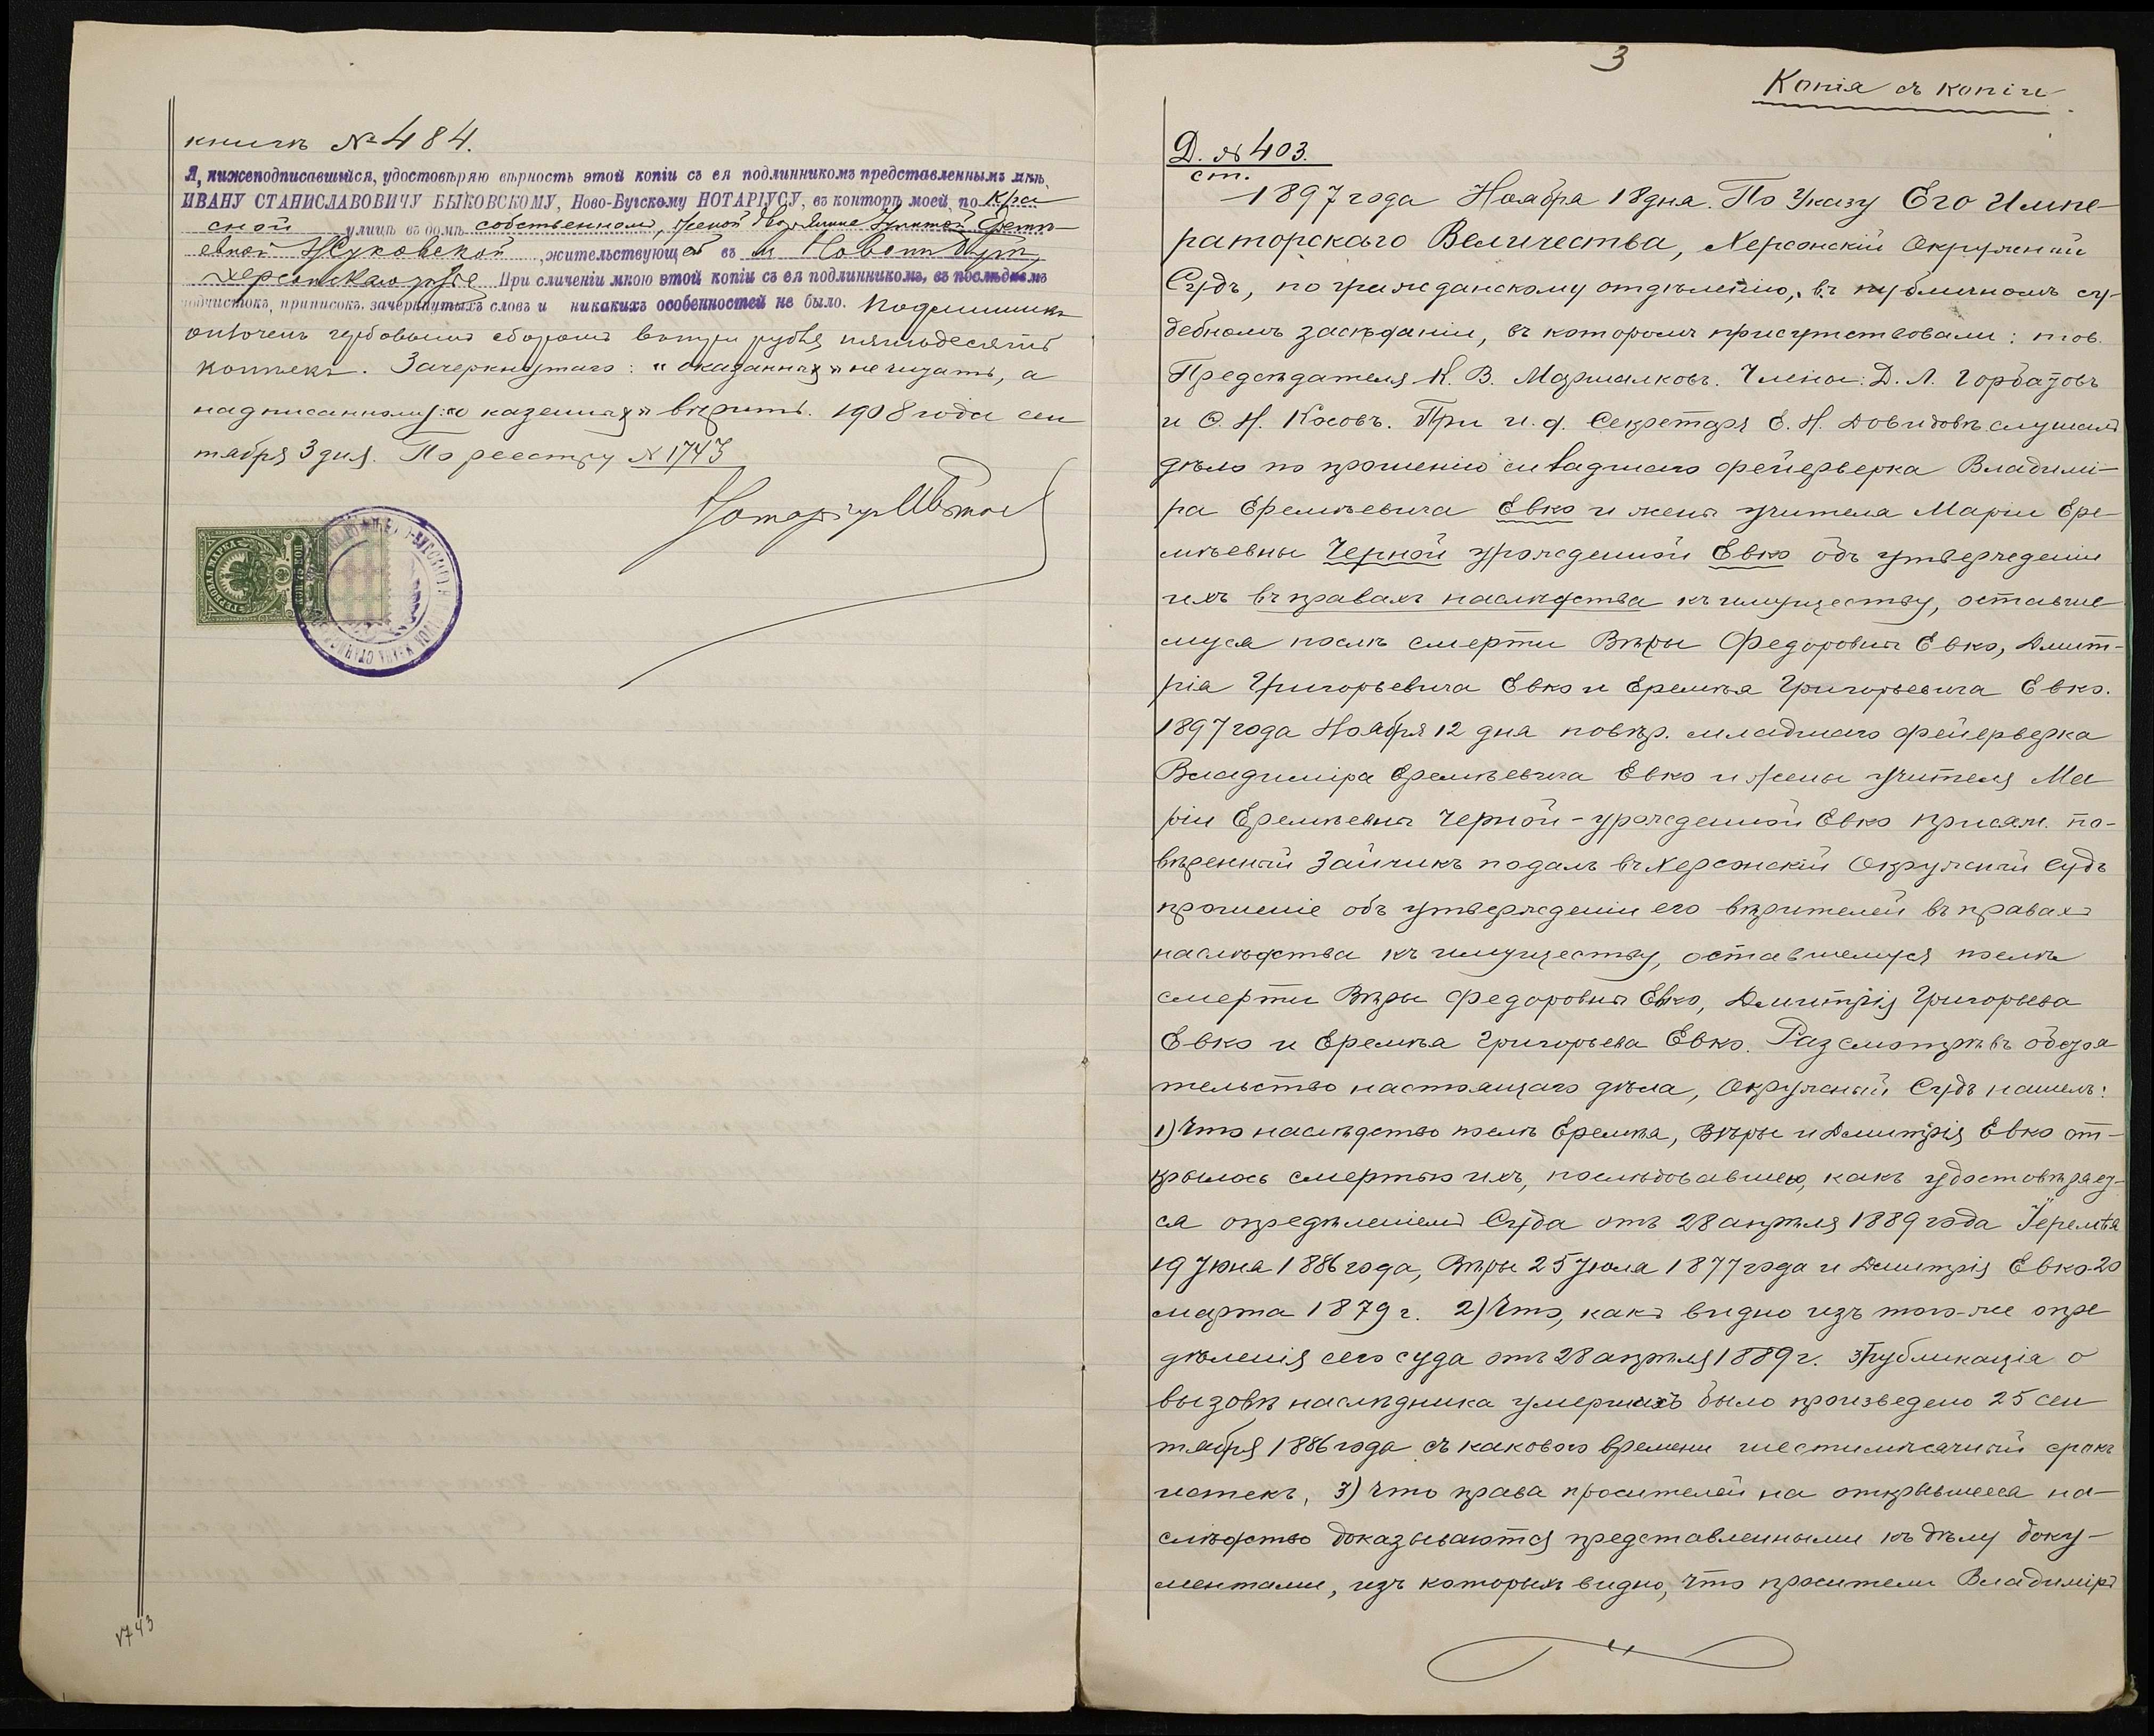 книгѣ № 484.
Я, нижеподписавшійся, удостовѣряю вѣрность этой копіи съ ея подлинникомъ представленнымъ мнѣ,
ИВАНУ СТАНИСЛАВОВИЧУ БЫКОВСКОМУ, Ново-Бугскому НОТАРІУСУ, въ конторѣ моей, по Кра
сной улицѣ въ домѣ собственномъ, женой дворянина
евной Жуковской, жительствующей въ м. Новомъ Бугѣ,
Херсонскаго уѣзда При сличеніи мною этой копіи съ ея подлинникомъ, въ послѣднемъ
подчистокъ, приписокъ, зачеркнутыхъ словъ и никакихъ особенностей не было. Подлинникъ
оплоченъ гербовымъ сборомъ въ рубля пятьдесятъ
копѣекъ. Зачеркнутаго: „оказанныя" не читать, а
надписанному: „о казенныя" вѣрить. 1908 года сен
тября 3 дня. По реестру № 1743
Нотаріусъ
ГЕРБОВАЯ МАРКА
1743
3
Копія съ копіи
Д. № 403.
ст.
1897 года Ноября 18 дня. По Указу Его Импе-
раторскаго Величества, Херсонскій Окружный
Судъ, по гражданскому отдѣленію, въ публичномъ су-
дебномъ засѣданіи, въ которомъ присутствовали: тов.
Предсѣдателя К. В. Маршалковъ. Члены: Д. Л. Горбатовъ
и С. Н. Косовъ. При и. д. Секретаря Е. Н. Довидовѣ слушалъ
дѣло по прошенію младшаго фейерверка Владимі-
ра Еремѣевича Евко и жены учителя Маріи Ере-
мѣевны Черной урожденной Евко объ утвержденіи
ихъ въ правахъ наслѣдства къ имуществу, оставше
муся послѣ смерти Вѣры Федоровны Евко, Дмит-
рія Григорьевича Евко и Еремѣя Григорьевича Евко.
1897 года Ноября 12 дня повѣр. младшаго фейерверка
Владиміра Еремѣевича Евко и жены учителя Ма
ріи Еремѣевны Черной - урожденной Евко присяж. по-
вѣренный Зайчикъ подалъ въ Херсонскій Окружный Судъ
прошеніе объ утвержденіи его вѣрителей въ правахъ
наслѣдства къ имуществу, оставшемуся послѣ
смерти Вѣры Федоровны Евко, Дмитрія Григорьева
Евко и Еремѣя Григорьева Евко. Разсмотрѣвъ обстоя
тельство настоящаго дѣла, Окружный Судъ нашелъ:
1) Что наслѣдство послѣ Еремѣя, Вѣры и Дмитрія Евко от-
крылось смертью ихъ, послѣдовавшею, какъ удостовѣряет-
ся опредѣленіемъ Суда отъ 28 апрѣля 1889 года Іеремѣя
19 Іюня 1886 года, Вѣры 25 Іюля 1877 года и Дмитрія Евко 20
марта 1879 г. 2) Что, какъ видно изъ того-же опре
дѣленія сего суда отъ 28 апрѣля 1889 г. публикація о
вызовѣ наслѣдника умершихъ было произведено 25 сен
тября 1886 года съ какового времени шестимѣсячный срокъ
истекъ, 3) Что права просителей на открывшееся на-
слѣдство доказываются представленными къ дѣлу доку-
ментами, изъ которыхъ видно, что просители Владиміръ